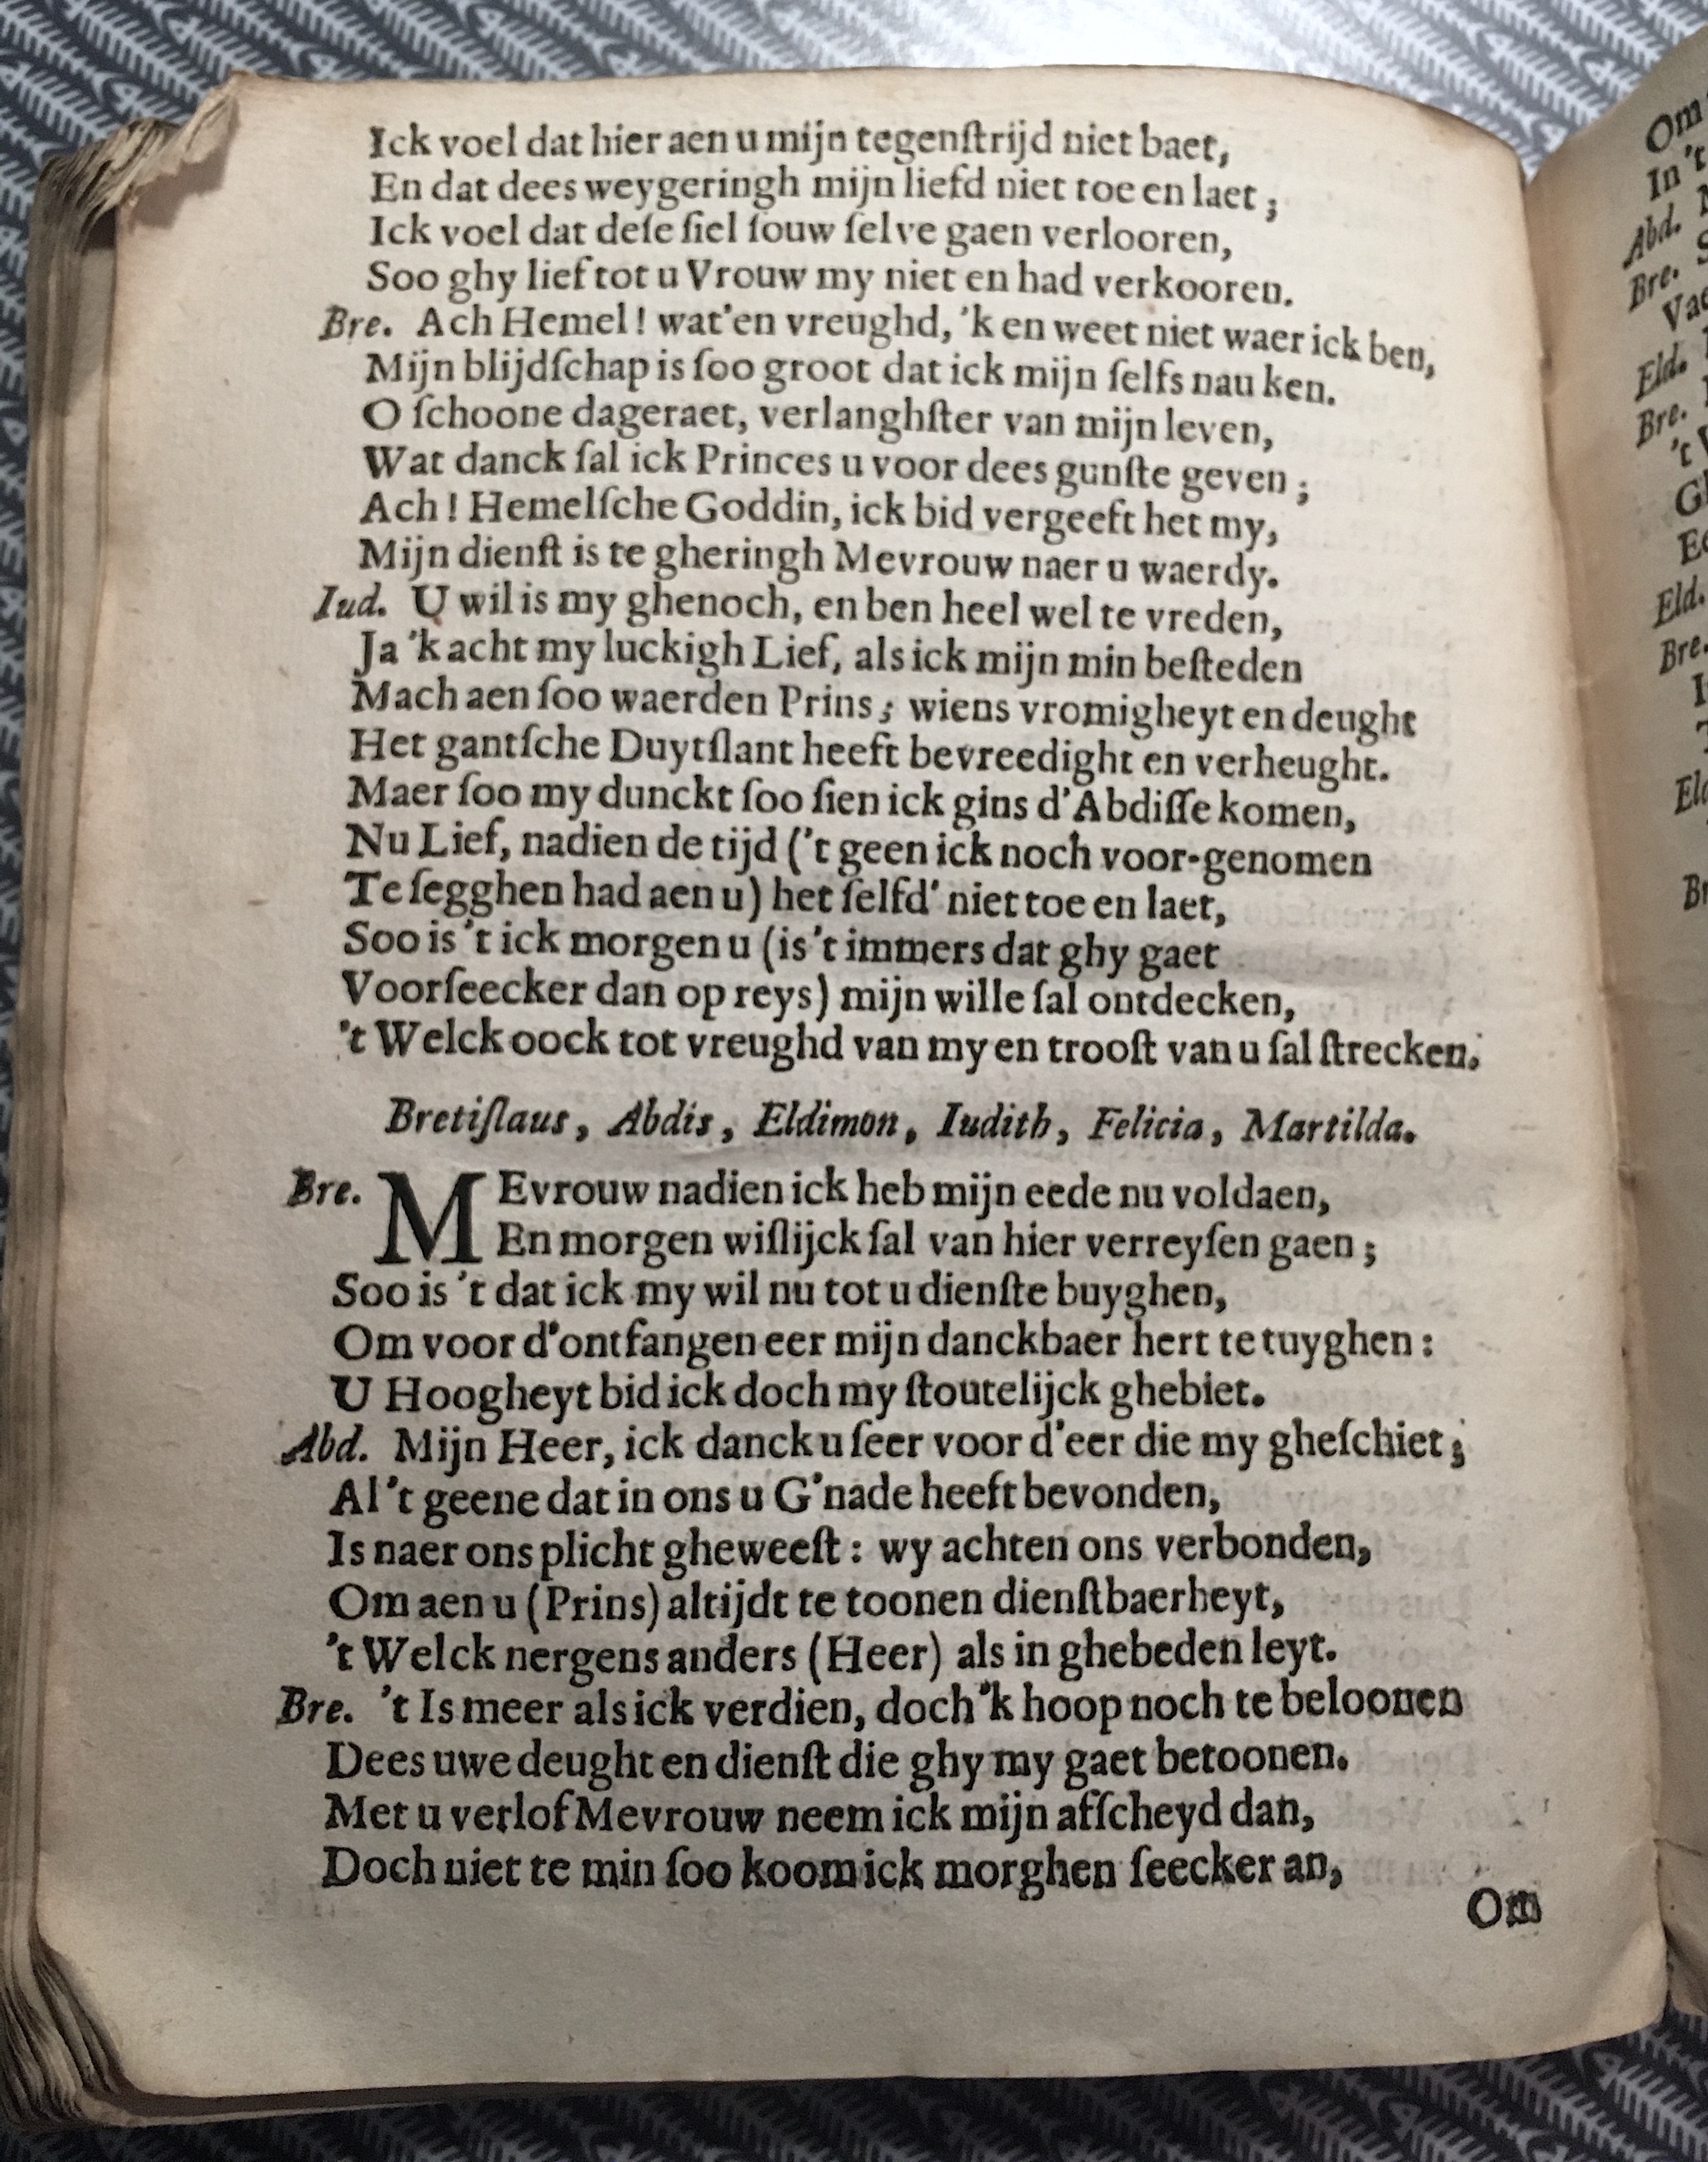 Ick voel dat hier aen u mijn tegenſtrijd niet baet,
En dat dees weygeringh mijn liefd niet toe en laet ;
Ick voel dat deſe ſiel ſouw ſelve gaen verlooren,
Soo ghy lief tot u Vrouw my niet en had verkooren.
Bre. Ach Hemel! wat'en vreughd, 'k en weet niet waer ick ben,
Mijn blijdſchap is ſoo groot dat ick mijn ſelfs nau ken.
O ſchoone dageraet, verlanghſter van mijn leven,
Wat danck ſal ick Princes u voor dees gunſte geven ;
Ach! Hemelſche Goddin, ick bid vergeeft het my,
Mijn dienſt is te gheringh Mevrouw naer u waerdy.
Iud. U wil is my ghenoch, en ben heel wel te vreden,
Ja 'k acht my luckigh Lief, als ick mijn min beſteden
Mach aen ſoo waerden Prins ; wiens vromigheyt en deught
Het gantſche Duytſlant heeft bevreedight en verheught.
Maer ſoo my dunckt ſoo ſien ick gins d'Abdiſſe komen,
Nu Lief, nadien de tijd ('t geen ick noch voor-genomen
Te ſegghen had aen u) het ſelfd' niet toe en laet,
Soo is 't ick morgen u (is 't immers dat ghy gaet
Voorſeecker dan op reys) mijn wille ſal ontdecken,
't Welck oock tot vreughd van my en trooſt van u ſal ſtrecken.
Bretiſlaus, Abdis, Eldimon, Iudith, Felicia, Martilda.
Bre. MEvrouw nadien ick heb mijn eede nu voldaen,
En morgen wiſlijck ſal van hier verreyſen gaen ;
Soo is 't dat ick my wil nu tot u dienſte buyghen,
Om voor d'ontfangen eer mijn danckbaer hert te tuyghen :
U Hoogheyt bid ick doch my ſtoutelijck ghebiet.
Abd. Mijn Heer, ick danck u ſeer voor d'eer die my gheſchiet ;
Al 't geene dat in ons u G'nade heeft bevonden,
Is naer ons plicht gheweeſt : wy achten ons verbonden,
Om aen u (Prins) altijdt te toonen dienſtbaerheyt,
't Welck nergens anders (Heer) als in ghebeden leyt.
Bre. 't Is meer als ick verdien, doch 'k hoop noch te beloonen
Dees uwe deught en dienſt die ghy my gaet betoonen.
Met u verlof Mevrouw neem ick mijn afſcheyd dan,
Doch niet te min ſoo koom ick morghen ſeecker an,
Om
Om
In 't
Abd.
Bre.
Eld.
Bre.
't
Eld.
Bre.